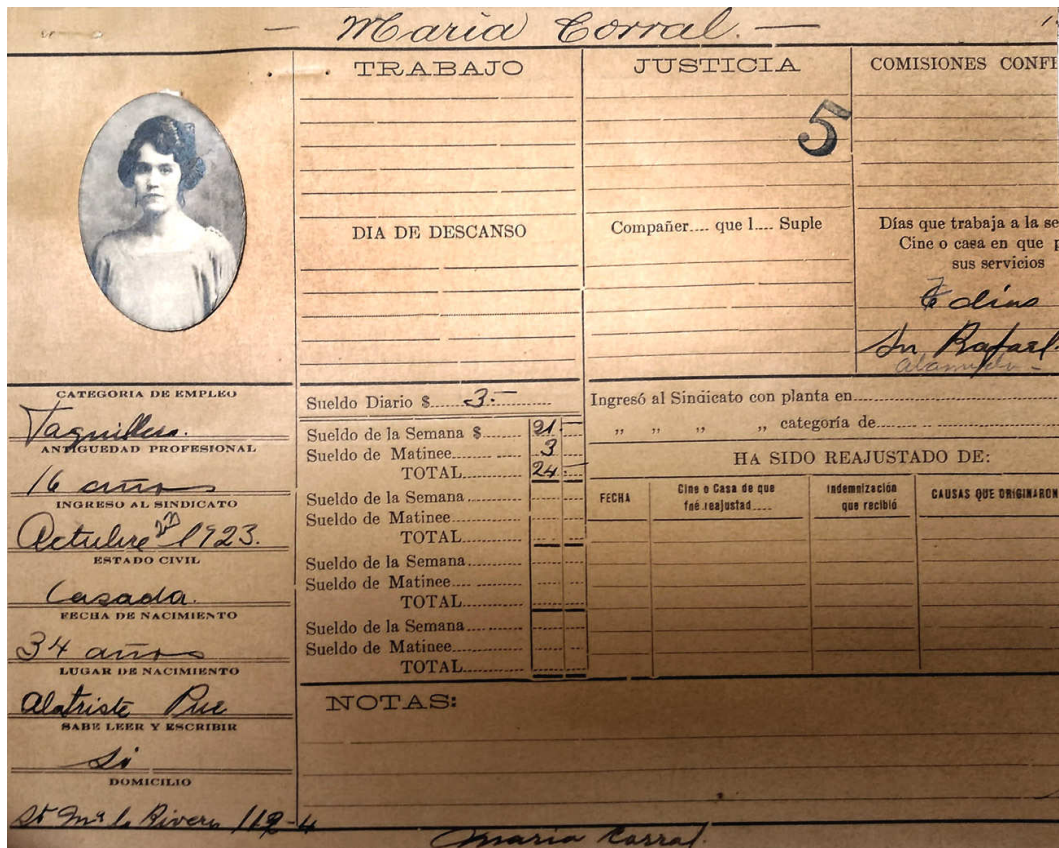 — Maria Corral. —
TRABAJO
JUSTICIA
COMISIONES CONFE
5
DIA DE DESCANSO
Compañer.... que l.... Suple
Días que trabaja a la se
Cine o casa en que p
sus servicios
dias
Sn Rafael
CATEGORIA DE EMPLEO
Taquillera.
ANTIGÜEDAD PROFESIONAL
16 años
INGRESO AL SINDICATO
Octubre 27 1923.
ESTADO CIVIL
Casada.
FECHA DE NACIMIENTO
34 años
LUGAR DE NACIMIENTO
Alatriste Pue
SABE LEER Y ESCRIBIR
Si
DOMICILIO
Sta Ma la Rivera 112-4
Sueldo Diario $ 3.-
Sueldo de la Semana $ 21
Sueldo de Matinee 3
TOTAL 24
Sueldo de la Semana
Sueldo de Matinee
TOTAL
Sueldo de la Semana
Sueldo de Matinee
TOTAL
Sueldo de la Semana
Sueldo de Matinee
TOTAL
Ingresó al Sindicato con planta en
,, ,, ,, ,, categoría de
HA SIDO REAJUSTADO DE:
FECHA
Cine o Casa de que
fué reajustad.....
Indemnización
que recibió
CAUSAS QUE ORIGINARON
NOTAS:
Maria Corral.